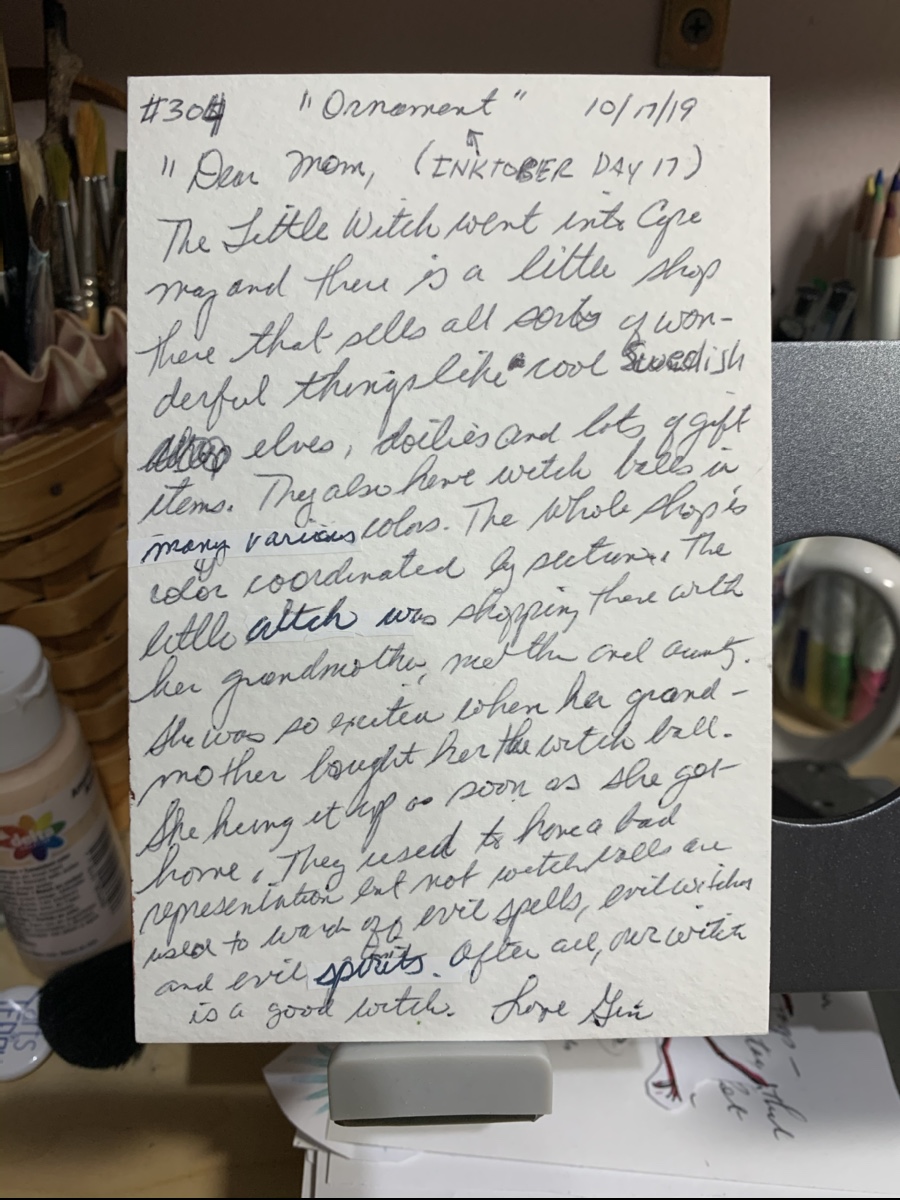 #304 "Ornament" 10/17/19
"Dear Mom, (INKTOBER DAY 17)
The Little Witch went into Cape
may and there is a little shop
there that sells all sorts of won-
derful things like cool Swedish
elves, doilies and lots of gift
items. They also have witch balls in
many various colors. The whole shop is
color coordinated by sections. The
little witch was shopping there with
her grandmother, mother and aunts.
She was so excited when her grand-
mother bought her the witch ball.
She hung it up as soon as she got
home. They used to have a bad
representation but not witch balls are
used to ward off evil spells, evil witches
and evil spirits. After all, our witch
is a good witch. Love Gin